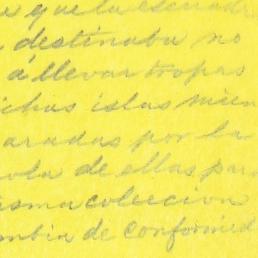 a que la escuadr
destinaba no
á llevar tropas
ichas islas mien
aradas por la
ola de ellas par
isma coleccion
mbia de conformid